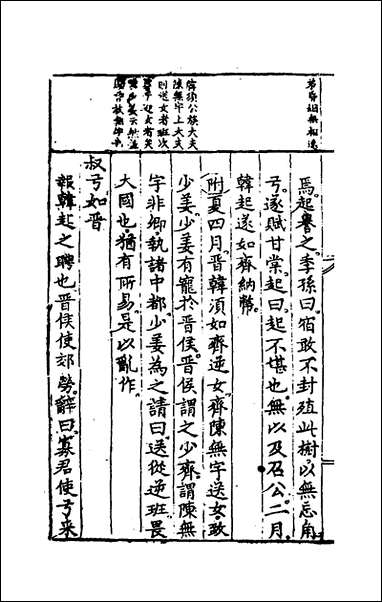 焉起譽之季孫曰宿敢不封殖此樹以無忘角
弓遂賦甘棠起曰起不堪也無以及召公二月
韓起遂如齊納幣
附夏四月晉韓須如齊逆女齊陳無宇送女致
少姜少姜有寵於晉侯晉侯謂之少齊謂陳無
宇非卿執諸中都少姜為之請曰送從逆班畏
大國也猶有所易是以亂作
叔弓如晉
報韓起之聘也晉侯使郊勞辭曰寡君使弓來
韓須公族大夫
陳無宇上大夫
則送女者班次